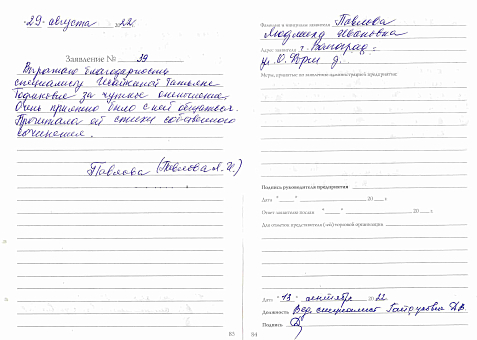 "29" августа 2022 г.
Заявление № 39
Выражаю благодарность
специалисту Татьяне
за чуткое отношение.
Очень приятно было с ней общаться.
Прочитала ей стихи собственного
сочинения.
Павлова (Павлова Л. И.)
83
Фамилия и инициалы заявителя Павлова
Людмила Ивановна
Адрес заявителя г. Волгоград
ул. д.
Меры, принятые по заявлению администрацией предприятия:
Подпись руководителя предприятия
Дата " " 20 г.
Ответ заявителю послан " " 20 г.
Для отметок представителя (-ей) торговой организации
Дата "13" сентября 2022
Должность Вед. специалист
Подпись
84